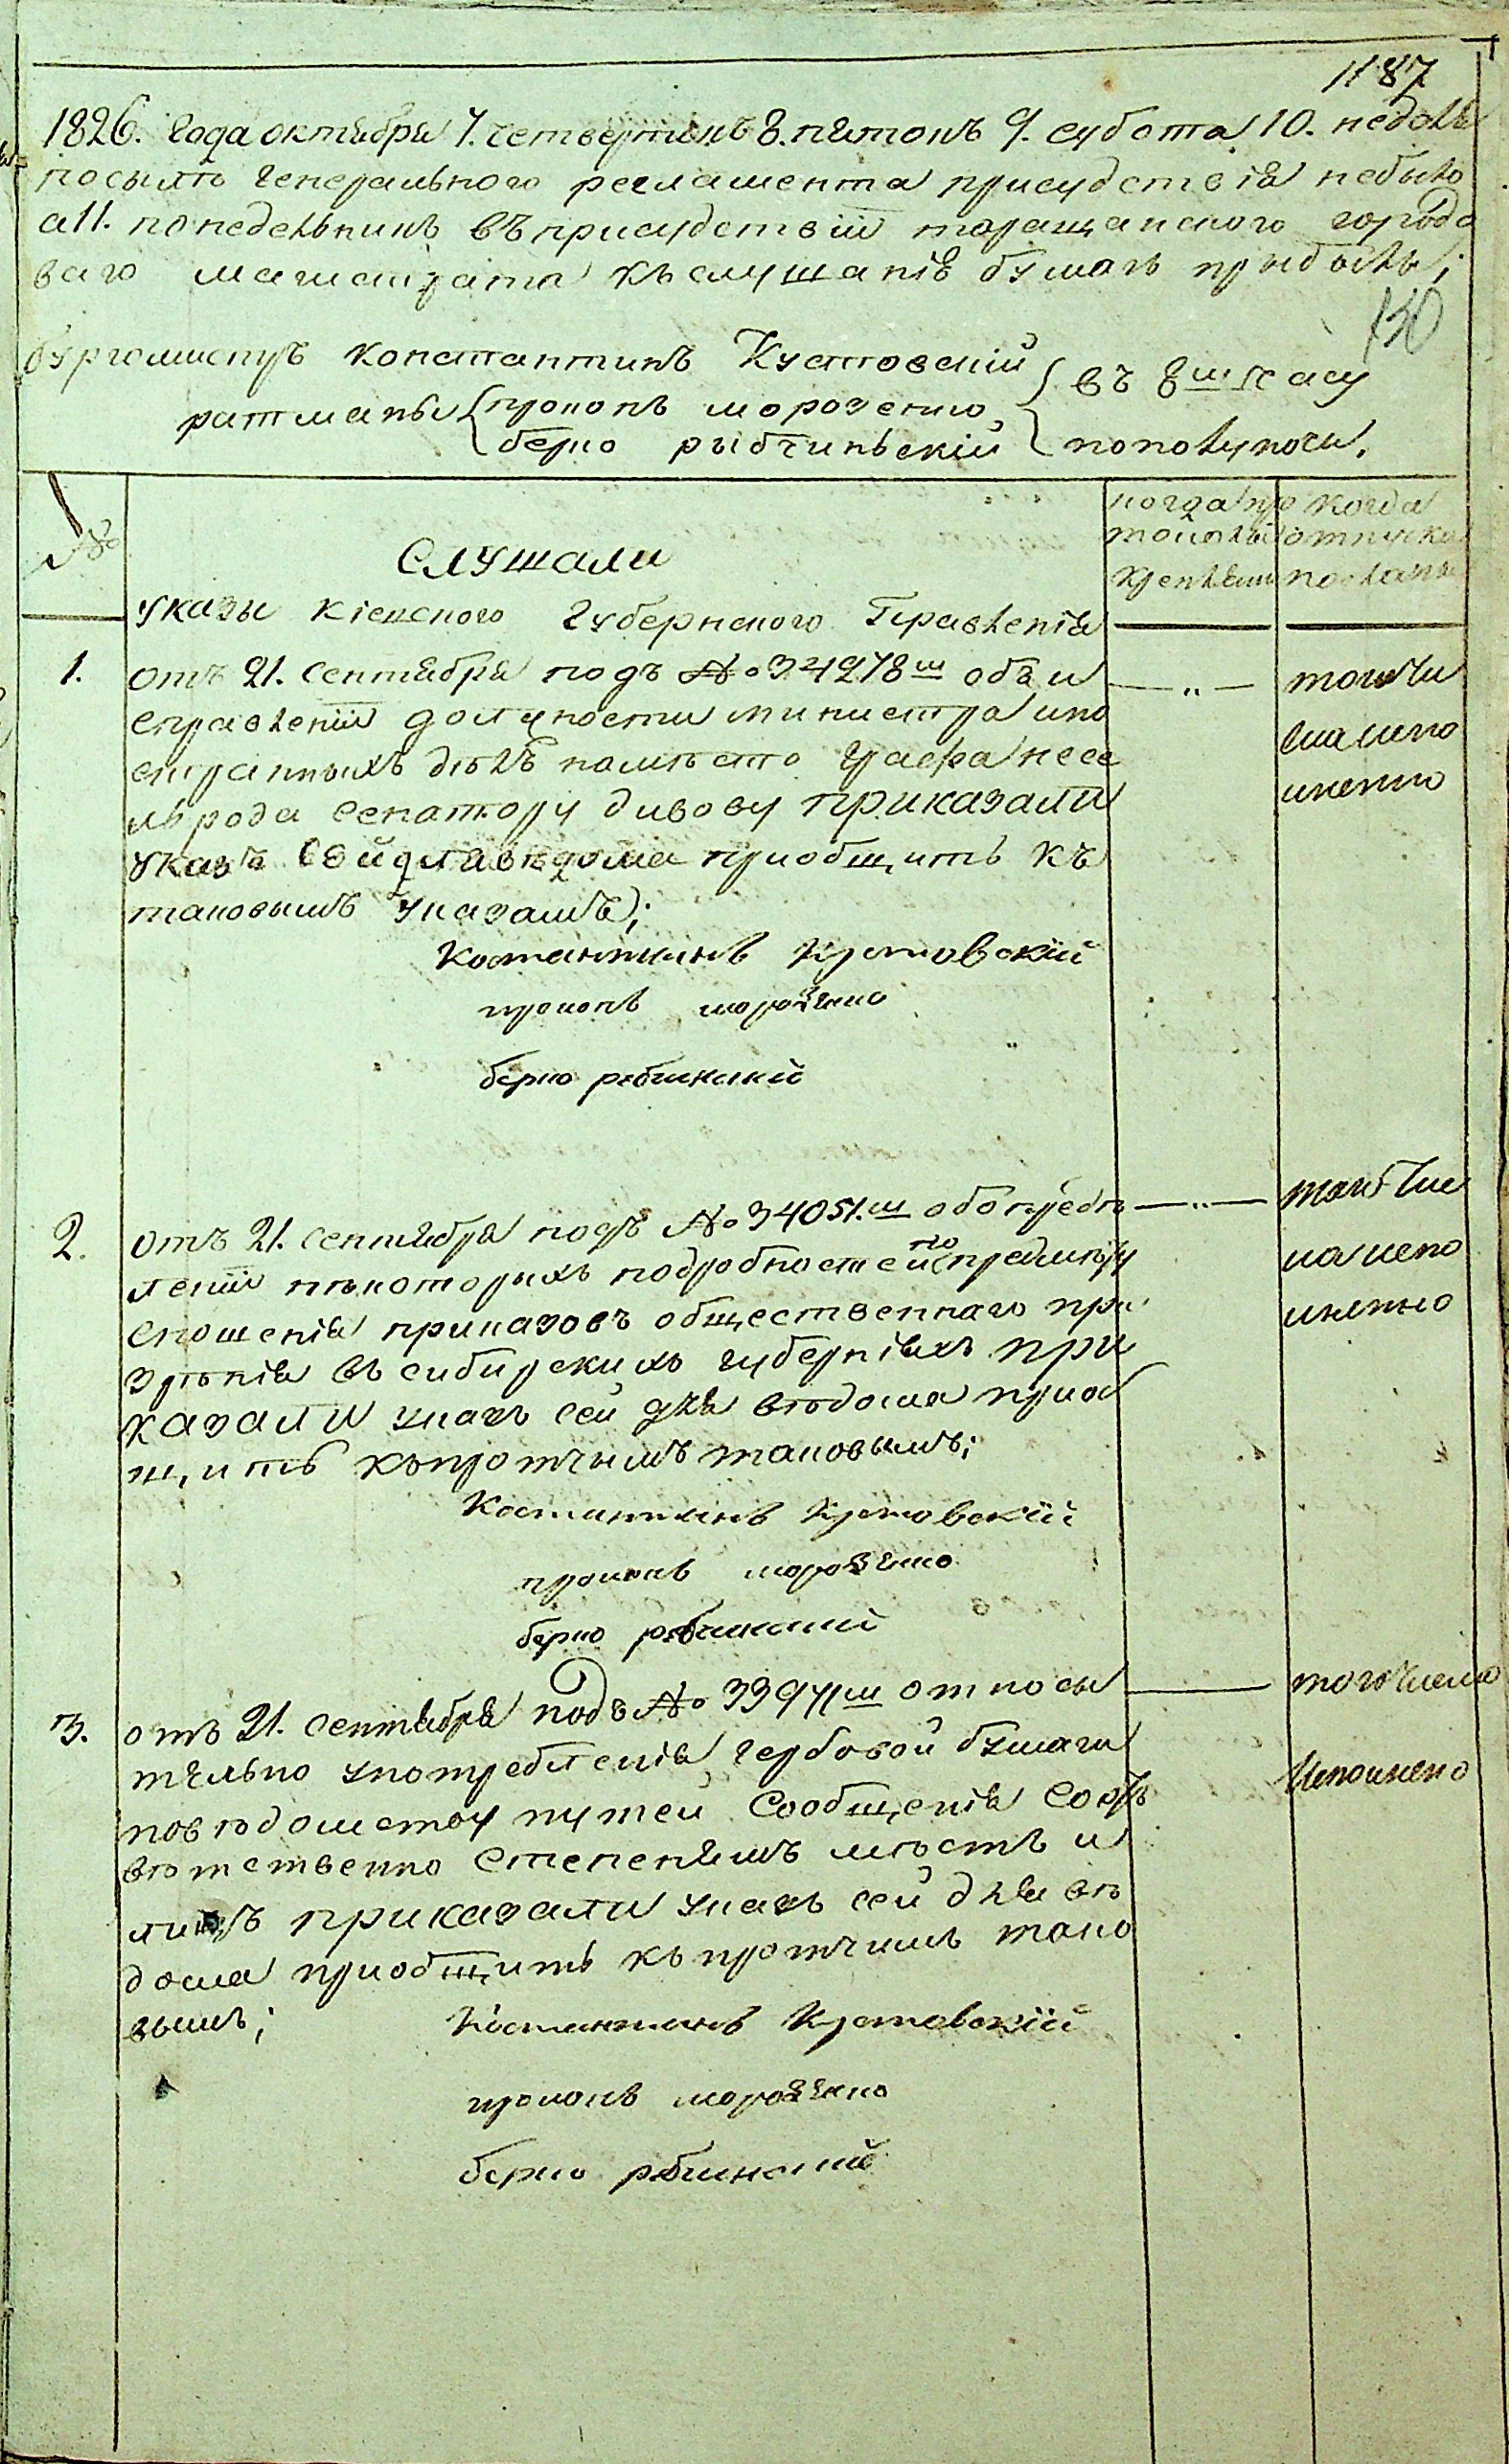 1187
1826. года октября 7. четвертокъ 8. пятокъ 9. субота 10. неделя
посылѣ генерального регламента присудствія небыло
а 11. понедельникъ въ присудствіи таращанского городо
ваго магистрата къ слушанію бумагъ прибыли;
130
бургомистръ Константинъ Кустовскій
въ 8ш часу
ратманы
прокопъ морозенко
берко рыбчиньскій
пополуночи.
№
Слушали
когда про
токолы
скреплены
когда
отпуска
посланы
указы кіевского Губернского Правленія
1.
отъ 21. сентября подъ № 34978ш объ и
справленіи должности министра ино
странныхъ дѣлъ намѣсто Графа Нессе
льрода сенатору дивову приказали
указъ сей для вѣдома приобщить къ
таковымъ указамъ;
— „ —
того чи
сла испо
лненно
Костантинъ Кустовскій
прокопъ морозенко
берко рябчинский
2.
отъ 21. сентября подъ № 34051.ш обопредѣ
леніи нѣкоторыхъ подробностей по предмѣту
сношенія приказовъ общественнаго при
зрѣнія въ сибирскихъ губерніяхъ при
казали указъ сей для вѣдома приоб
щить къ протчимъ таковымъ;
— „ —
того чис
ла испо
лненно
Костантинъ Кустовскій
прокопъ морозенко
берко рябчинский
3.
отъ 21. сентября подъ № 33941ш относи
тельно употребленія гербовой бумаги
повѣдомству путей Сообщенія соот
вѣтственно степенямъ мѣстъ и
лицъ приказали указъ сей для вѣ
дома приобщить къ протчимъ тако
вымъ;
того числа
Исполнено
Костантинъ Кустовскій
прокопъ морозенко
берко рябчинский